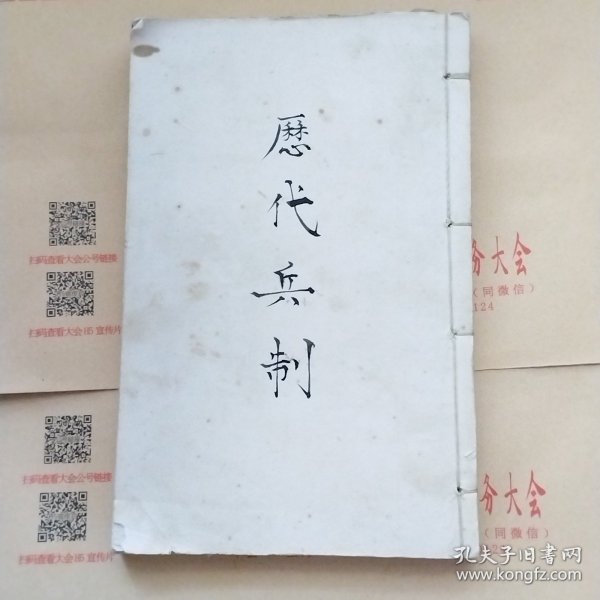 歷代兵制
扫码查看大会公号链接
扫码查看大会H5宣传片
务大会
(同微信)
124
扫码查看大会公号链接
扫码查看大会H5宣传片
务大会
(同微信)
孔夫子旧书网
www.kongfz.com